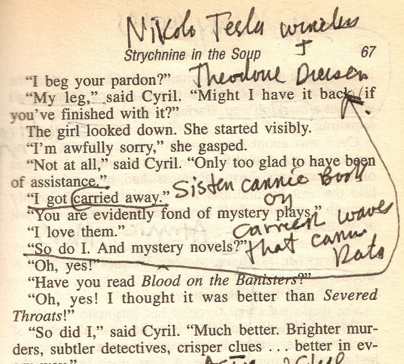 Nikolo Tesla wireless
+
Strychnine in the Soup 67
Theodore
"I beg your pardon?"
"My leg," said Cyril. "Might I have it back, if
you've finished with it?"
The girl looked down. She started visibly.
"I'm awfully sorry," she gasped.
"Not at all," said Cyril. "Only too glad to have been
of assistance."
"I got carried away."
Sister carrie Book
or
"You are evidently fond of mystery plays."
"I love them."
carrier waves
that carry
"So do I. And mystery novels?"
"Oh, yes!"
"Have you read Blood on the Banisters?"
"Oh, yes! I thought it was better than Severed
Throats!"
"So did I," said Cyril. "Much better. Brighter mur-
ders, subtler detectives, crisper clues ... better in ev-